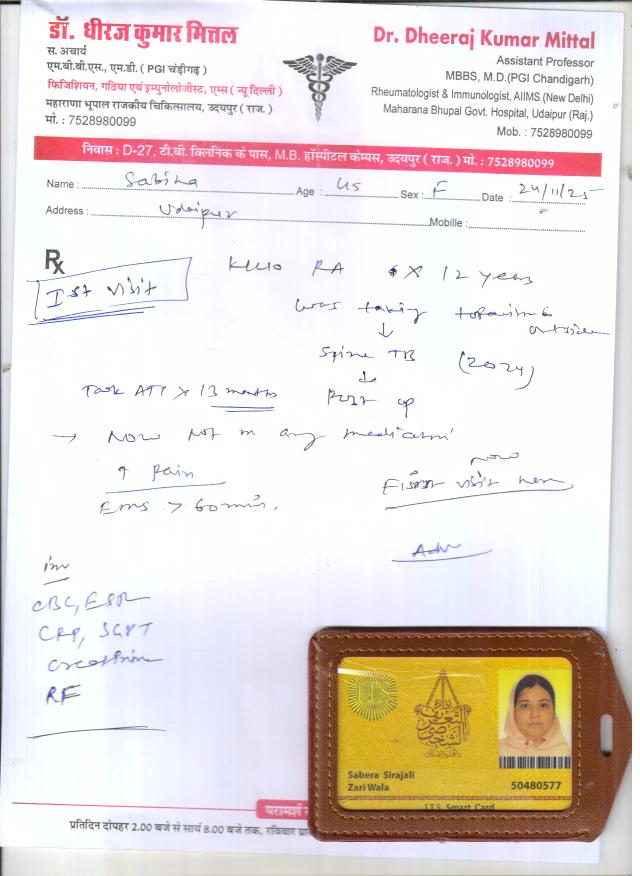 डॉ. धीरज कुमार मित्तल
स. आचार्य
एम.बी.बी.एस., एम.डी. ( PGI चंडीगढ़ )
फिजिशियन, गठिया एवं इम्युनोलोजीस्ट, एम्स ( न्यू दिल्ली )
महाराणा भूपाल राजकीय चिकित्सालय, उदयपुर ( राज. )
मो. : 7528980099
Dr. Dheeraj Kumar Mittal
Assistant Professor
MBBS, M.D.(PGI Chandigarh)
Rheumatologist & Immunologist, AIIMS (New Delhi)
Maharana Bhupal Govt. Hospital, Udaipur (Raj.)
Mob. : 7528980099
निवास : D-27, टी.बी. क्लिनिक के पास, M.B. हॉस्पीटल केम्पस, उदयपुर ( राज. ) मो. : 7528980099
Name : Sabiha Age : 45 Sex : F Date : 24/11/25
Address : Udaipur Mobille :
Rx
Ist visit
K/c/o RA X 12 years
was taking outside
Spine TB (2024)
Took ATT X 13 months Post op
→ Now not on any medication
↑ Pain
EMS > 60 min.
now
First visit here
Adv
inv
CBC, ESR
CRP, SGPT
creatinine
RF
Sabera Sirajali
Zari Wala
50480577
I.T.S. Smart Card
प्रतिदिन दोपहर 2.00 बजे से सायं 8.00 बजे तक, रविवार